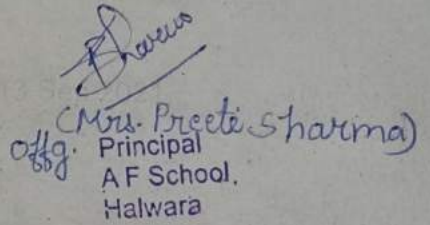 PSharma
(Mrs. Preeti Sharma)
Offg. Principal
A F School,
Halwara